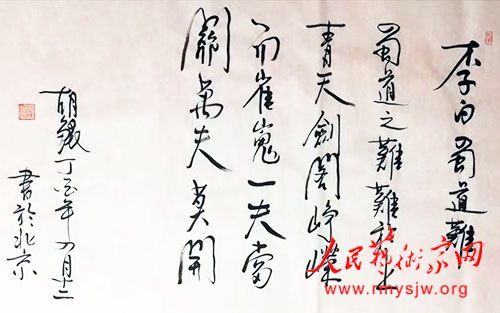 李白蜀道難
蜀道之難難於上
青天劍閣崢嶸
而崔嵬一夫當
關萬夫莫開
胡 丁 年 月十二
書於北京
人民藝術家网
www.rmysjw.org